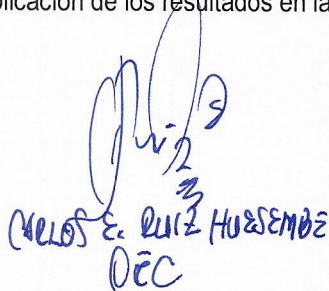 plicación de los resultados en la
Ruiz
CARLOS E. RUIZ HUESEMBE
DEC